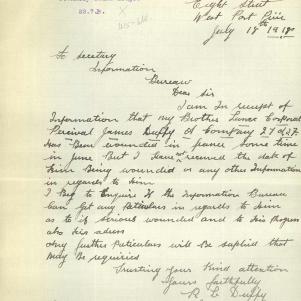 Eight Street
West Port Pirie
July 18th 1918
To secetary
Information
Bureau
Dear Sir
I am In receipt of
Information that my Brother Lance Corporal
Percival James Duffy A Company 27th
Has Been wounded in france some time
in june. But I Have not received the date of
Him Being wounded or any other Information
in regards to Him
I Beg to Enquire If the Information Bureau
can get any Particulars in regards to Him
as to if serious wounded and to his Progress
also his adress
Any further Particulars will be suplied that
may be requiried
Trusting your Kind attention
Yours faithfully
Duffy